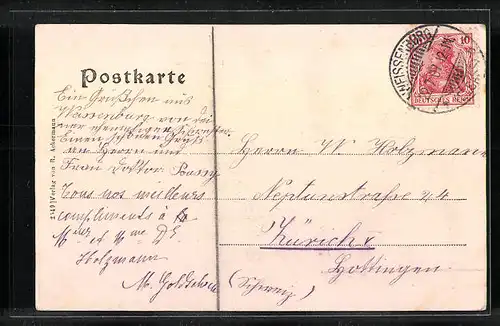 Postkarte
Ein Grüßchen aus
Weissenburg von
Einen schönen Gruß
an Herrn und
Frau Doktor
Tous nos meilleurs
compliments à
Mr et Mme
Holzmann
M.
Herrn W. Holzmann
Neptunstraße 24
Zürich V
Hottingen
(Schweiz)
WEISSENBURG
10
DEUTSCHES REICH
Verlag von R. Ackermann